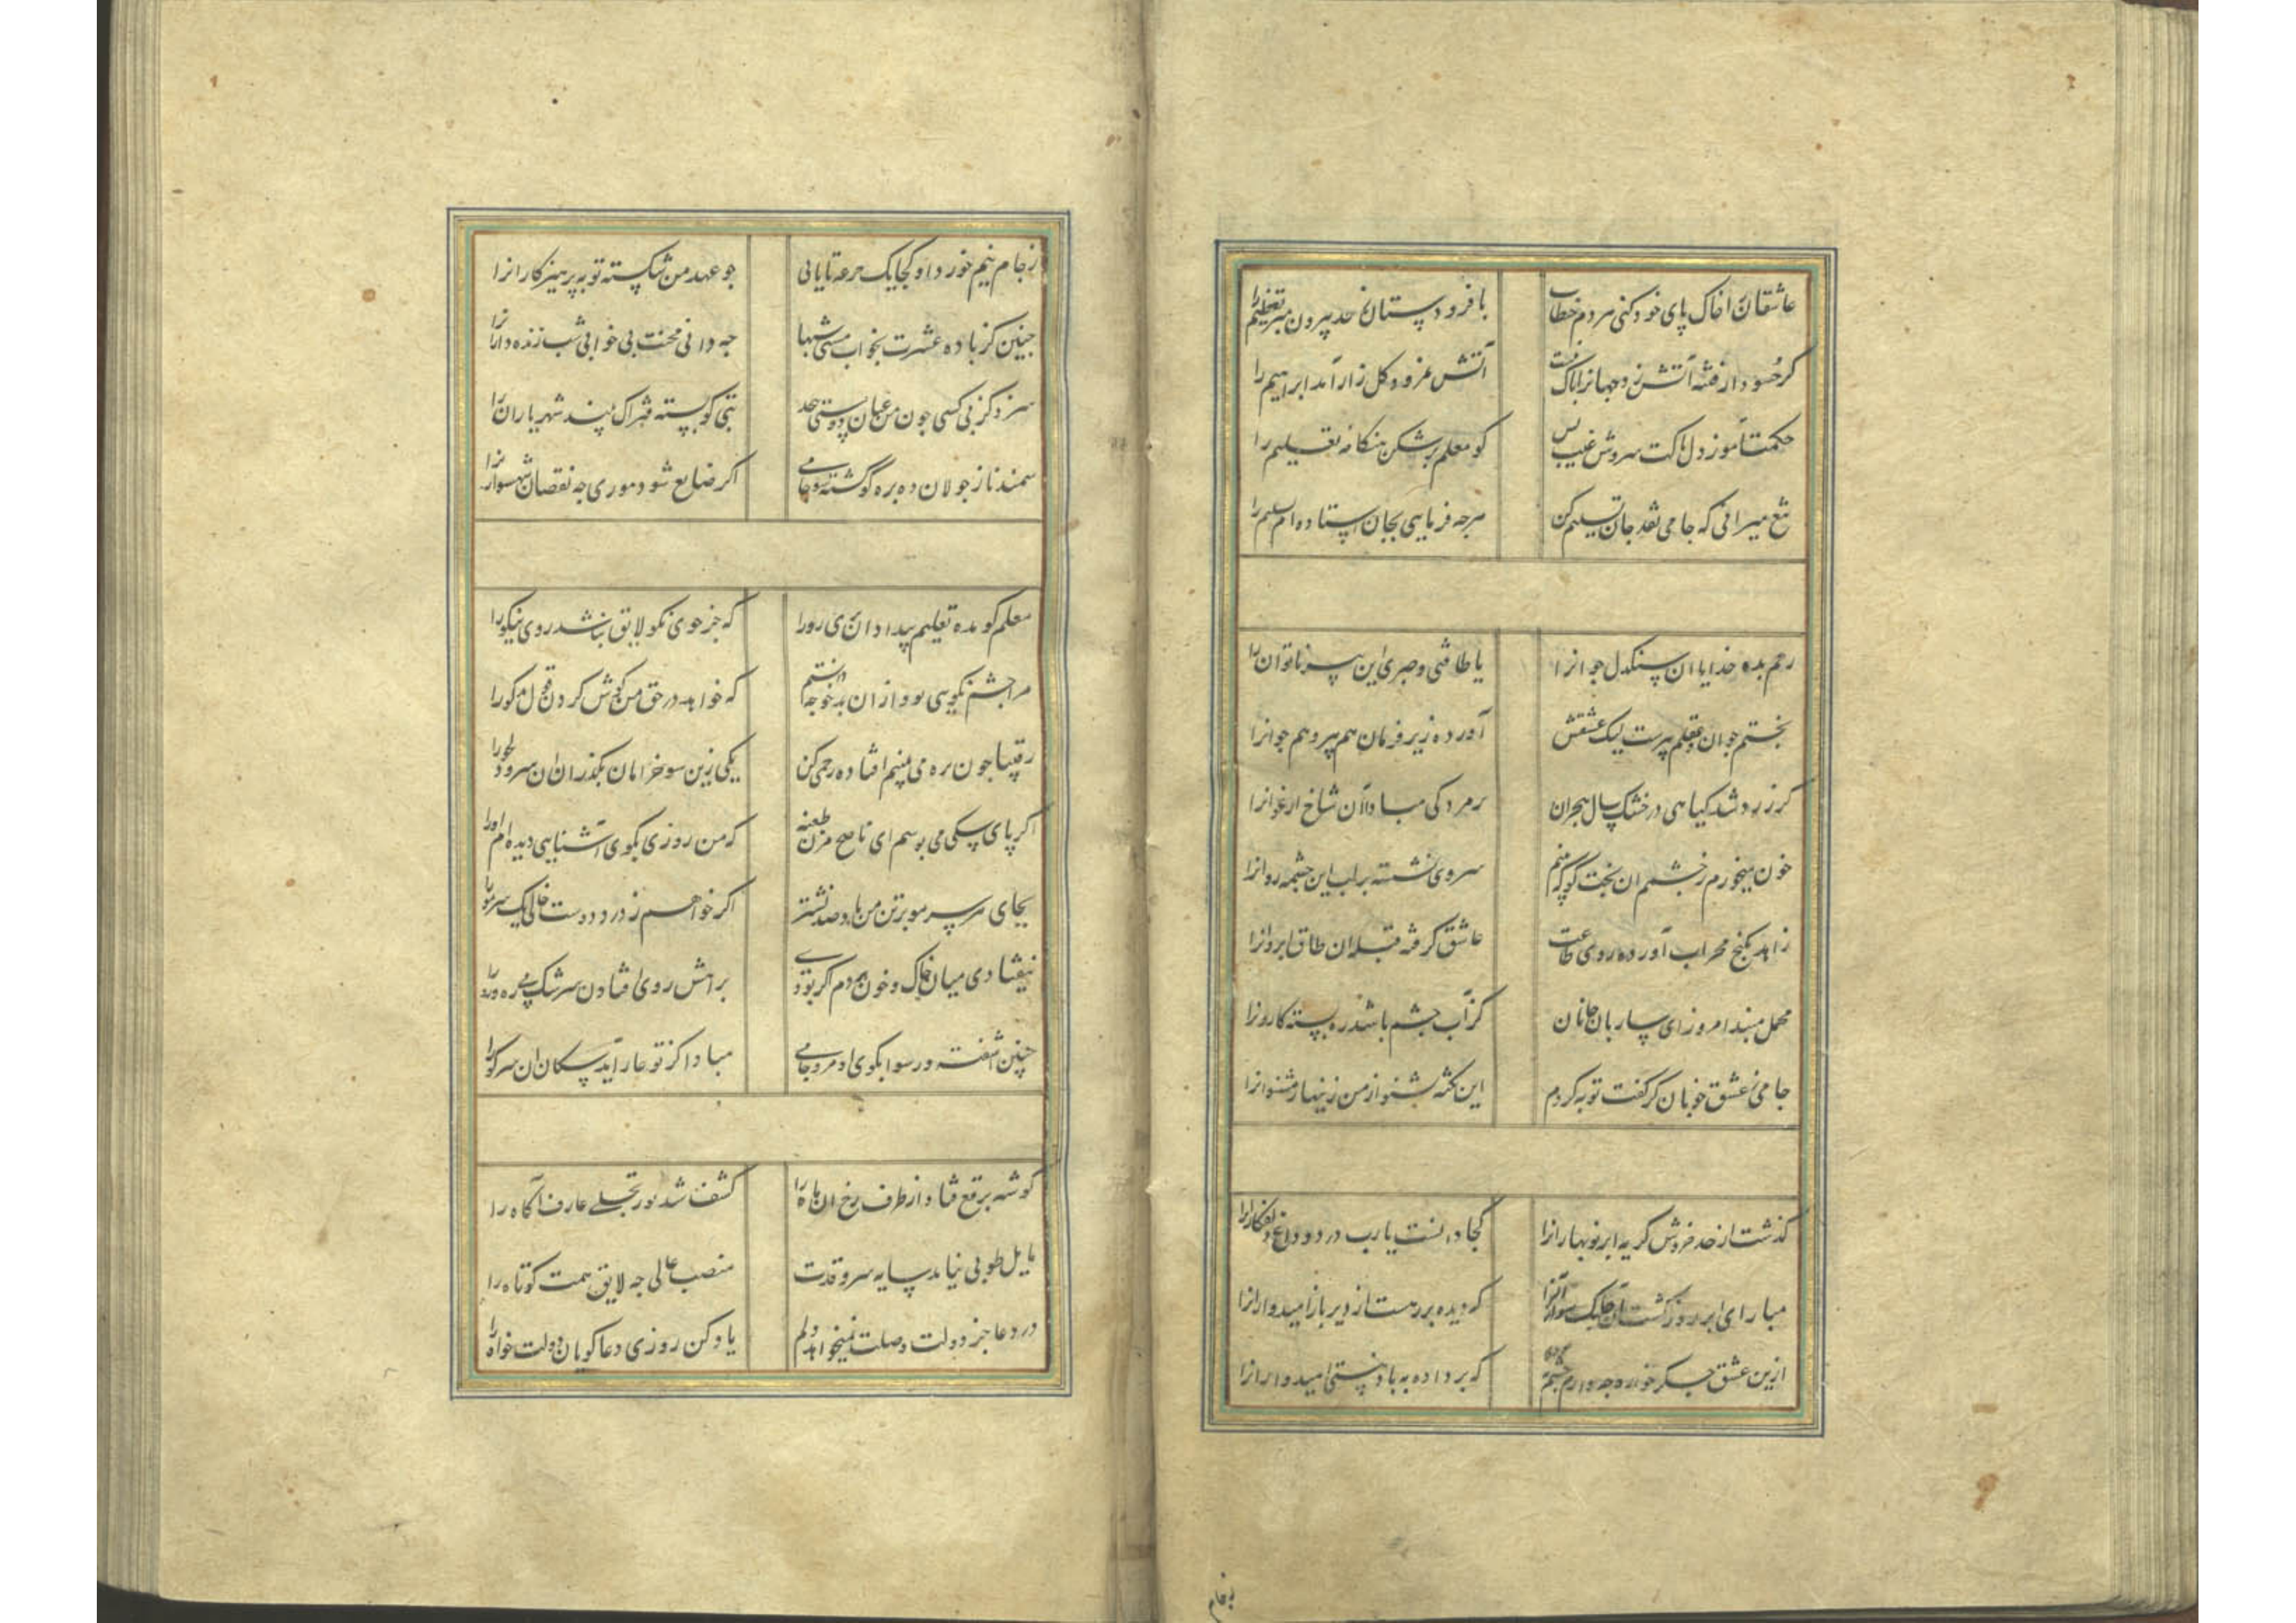 عاشقان را خاک پای خود کنی هر دم خطاب با فرودستان ز حد بیرون مبر تعظیم را
گر حسود از فتنه آتش زد جهانرا باک نیست آتش نمرود گلزار آمد ابراهیم را
حکمت آموز دل ماکت سروش غیب بس کو معلم بر شکن هنگامه تعلیم را
تیغ میرانی که جامی نقد جان تسلیم کن هرچه فرمایی بجان استاده‌ام تسلیم را
رحم بده خدایا ان سنکدل جوانرا یا طاقتی و صبری این پیر ناتوان را
بختم جوان و عقلم پیرست لیک عشقش آورده زیر فرمان هم پیر و هم جوانرا
گر زرد شد کیاهی در خشک سال هجران پژمردکی مبادا آن شاخ ارغوانرا
خون میخورم ز چشمم ان بخت کو که بینم سروی نشسته بر لب این چشمه روانرا
زاهد بکنج محراب آورده روی طاعت عاشق کرفته قبله ان طاق ابروانرا
محمل مبند امروز ای ساربان جانان کز آب چشم ما شد ره بسته کاروانرا
جامی ز عشق خوبان کر کفت توبه کردم این نکته بشنو از من زنهار مشنو انرا
گذشت از حد خروش کریه ابر نوبهارانرا کجا دانست یارب درد و داغ دلفکارانرا
مبار ای ابر روز کشت آن چابک سوار آنرا که دیده بر رهست از دیر باز امیدوارانرا
ازین عشق جگر خواره چه دارم چشم که بر داده به باد نیستی امیدوارانرا
بخام
ز جام نیم خورد او کجا یک جرعه تا یابی چو عهد من شکسته توبه پرهیزکارانرا
چنین کز باده عشرت بخواب مستی شبها چه دانی محنت بی خوابی شب زنده دارانرا
سزد کز بی کسی چون من عنان دوستی پیچد بتی کو بسته فتراک بیند شهریاران را
سمند ناز جولان ده بره کو کشته شو جامی اکر ضایع شود موری چه نقصان شهسوارانرا
معلم کو مده تعلیم بیداد ان پری رو را که جز خوی نکو لایق نباشد روی نیکو را
مرا چشم نکویی بود از ان بدخو چه دانستم که خواهد در حق من کوش کردن قول بدکو را
رقیبا چون بره می بینم افتاده رحمی کن یکی زین سو خرامان بکذران ان سرو دلجو را
اکر پای سکی می بوسم ای ناصح مزن طعنه که من روزی بکوی آشنایی دیده‌ام او را
بجای هر سر مو بر تن من باد صد نشتر اکر خواهم ز درد دوست خالی یک سر مو را
نیفتادی میان خاک و خون مردم اکر بودی براهش روی افتادن سرشک می ره رو را
چنین آشفته و رسوا بکوی او مرو جامی مبادا کز تو عار آید سکان ان سر کو را
کوشه برقع فتاد از طرف رخ ان ماه را کشف شد نور تجلی عارف آکاه را
مایل طوبی نیامد سایه سرو قدت منصب عالی چه لایق همت کوتاه را
در دعا جز دولت وصلت نمیخواهد دلم یاد کن روزی دعاکویان دولت خواه را